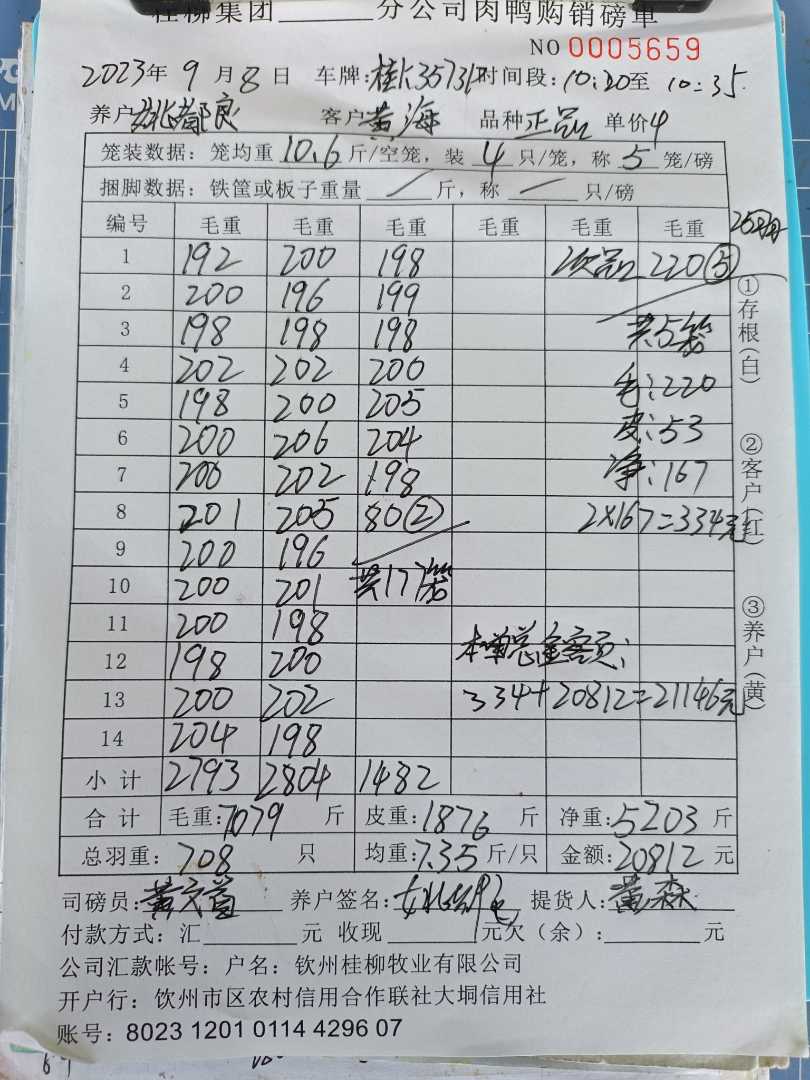 桂柳集团______分公司肉鸭购销磅单
NO 0005659
2023年9月8日 车牌:桂 时间段:10:20至10:35
养户:姚都良 客户黄海 品种正品 单价4
笼装数据: 笼均重10.6斤/空笼, 装4只/笼, 称5笼/磅
捆脚数据: 铁筐或板子重量 / 斤, 称 / 只/磅
编号 毛重 毛重 毛重 毛重 毛重 毛重
1 192 200 198 次品 220⑤
2 200 196 199
3 198 198 198 共5笼
4 202 202 200 毛:220
5 198 200 205 皮:53
6 200 206 204 净:167
7 200 202 198
8 201 205 80② 2×167=334元
9 200 196
10 200 201 共177笼
11 200 198
12 198 200 本单总金额:
13 200 202 334+20812=21146元
14 204 198
小计 2793 2804 1482
合计 毛重:7079斤 皮重:1876斤 净重:5203斤
总羽重: 708 只 均重:7.35斤/只 金额:20812元
司磅员: 养户签名: 提货人:黄森
付款方式: 汇______元 收现______元欠(余):______元
公司汇款帐号: 户名: 钦州桂柳牧业有限公司
开户行: 钦州市区农村信用合作联社大垌信用社
账号: 8023 1201 0114 4296 07
①存根(白)
②客户(红)
③养户(黄)